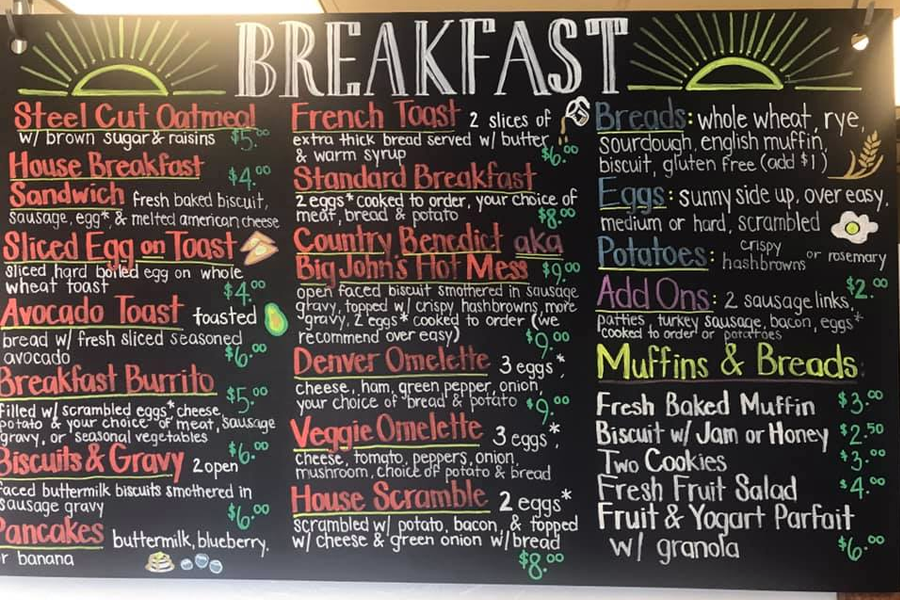 BREAKFAST
Steel Cut Oatmeal
w/ brown sugar & raisins $5.00
House Breakfast $4.00
Sandwich fresh baked biscuit,
sausage, egg* & melted american cheese
Sliced Egg on Toast
sliced hard boiled egg on whole
wheat toast $4.00
Avocado Toast toasted
bread w/ fresh sliced seasoned
avocado $6.00
Breakfast Burrito $5.00
filled w/ scrambled eggs* cheese,
potato & your choice of meat, sausage
gravy, or seasonal vegetables
Biscuits & Gravy 2 open $6.00
faced buttermilk biscuits smothered in
sausage gravy $6.00
Pancakes buttermilk, blueberry,
or banana
French Toast 2 slices of
extra thick bread served w/ butter
& warm syrup $6.00
Standard Breakfast
2 eggs* cooked to order, your choice of
meat, bread & potato $8.00
Country Benedict aka
Big John's Hot Mess $9.00
open faced biscuit smothered in sausage
gravy, topped w/ crispy hashbrowns, more
gravy, 2 eggs* cooked to order (we
recommend over easy) $9.00
Denver Omelette 3 eggs*,
cheese, ham, green pepper, onion,
your choice of bread & potato $9.00
Veggie Omelette 3 eggs*,
cheese, tomato, peppers, onion,
mushroom, choice of potato & bread
House Scramble 2 eggs*
scrambled w/ potato, bacon, & topped
w/ cheese & green onion w/ bread
$8.00
Breads: whole wheat, rye,
sourdough, english muffin,
biscuit, gluten free (add $1)
Eggs: sunny side up, over easy,
medium or hard, scrambled
Potatoes: crispy hashbrowns or rosemary
Add Ons: 2 sausage links, $2.00
patties, turkey sausage, bacon, eggs*
cooked to order or potatoes
Muffins & Breads
Fresh Baked Muffin $3.00
Biscuit w/ Jam or Honey $2.50
Two Cookies $3.00
Fresh Fruit Salad $4.00
Fruit & Yogart Parfait
w/ granola $6.00